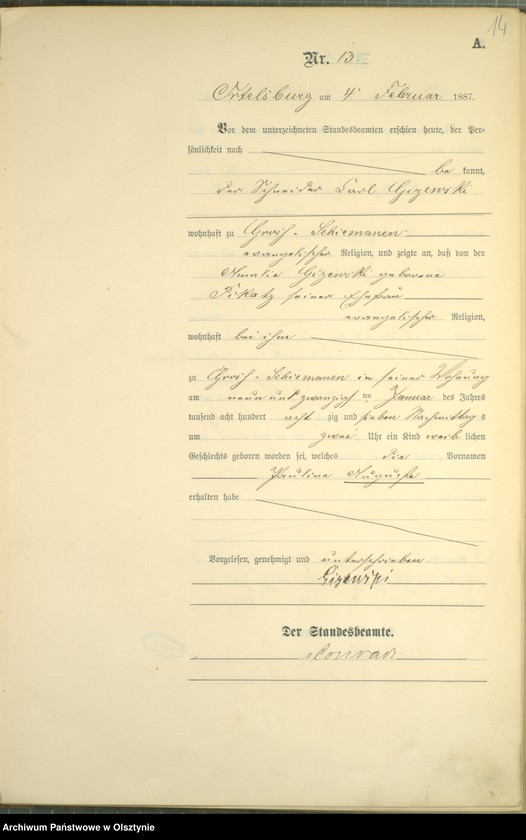 14
A.
Nr. 13
Ortelsburg am 4 Februar 1887.
Vor dem unterzeichneten Standesbeamten erschien heute, der Per-
sönlichkeit nach
be kannt,
der Schneider Carl Gizewski
wohnhaft zu Groß-Schiemanen
evangelischer Religion, und zeigte an, daß von der
Amalie Gizewski geborene
Pikatz seiner Ehefrau
evangelischer Religion,
wohnhaft bei ihm
zu Groß-Schiemanen in seiner Wohnung
am neun und zwanzigsten Januar des Jahres
tausend acht hundert acht zig und sieben Nachmittags
um zwei Uhr ein Kind weib lichen
Geschlechts geboren worden sei, welches die Vornamen
Pauline Auguste
erhalten habe
Vorgelesen, genehmigt und unterschrieben
Gizewski
Der Standesbeamte.
Conrad
Archiwum Państwowe w Olsztynie